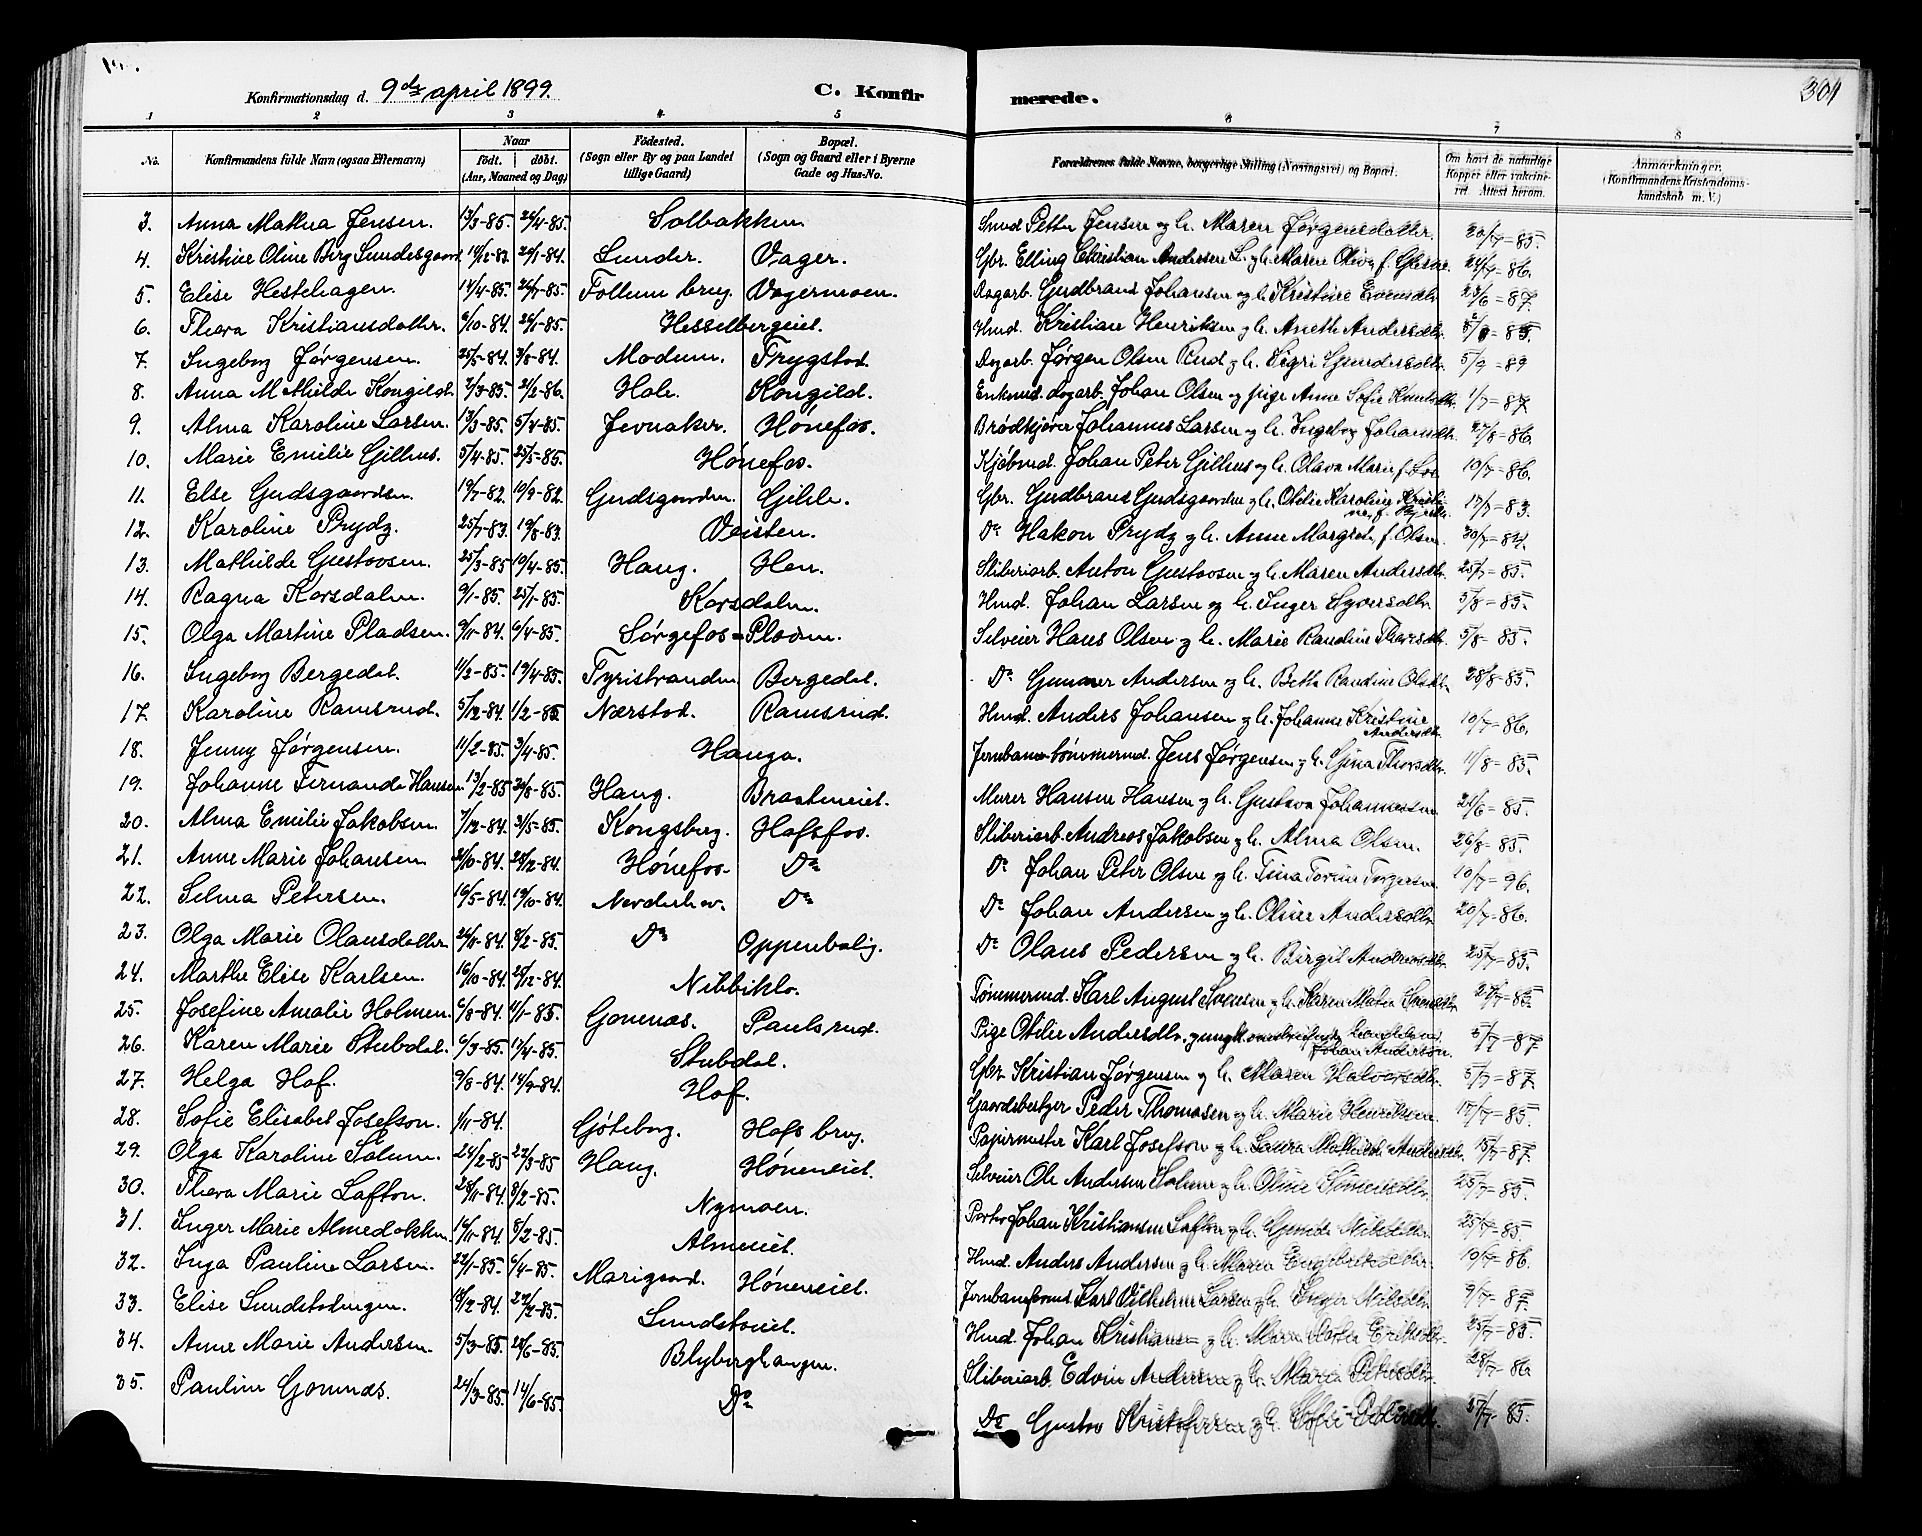 301
Konfirmationsdag d. 9de april 1899. C. Konfirmerede.
1 2 3 4 5 6 7 8
No. Konfirmandens fulde Navn (ogsaa Efternavn) Naar født. døbt. (Aar, Maaned og Dag) Fødested. (Sogn eller By og paa Landet tillige Gaard) Bopæl. (Sogn og Gaard eller i Byerne Gade og Hus-No. Forældrenes fulde Navne, borgerlige Stilling (Næringsvei) og Bopæl. Om havt de naturlige Kopper eller vakcineret. Attest herom. Anmærkninger. (Konfirmandens Kristendomskundskab m. V.)
3. Anna Mathea Jensen. 13/3-85. 26/4-85. Solbakken Smed Petter Jensen og h. Maren Jørgensdatter. 30/7=85.
4. Kristine Oline Berg Lundesgaard 14/12-83. 20/1-84. Lunder. Vager. Gbr. Elling Christian Andersen L. og h. Maren Olive f. 24/7=86.
5. Elise Hestehagen. 14/4-85. 26/7-85. Follum brug. Vagermoen. Dagarb. Gudbrand Johansen og h. Kristine Evensdtr 23/6=87.
6. Thora Kristiansdatter. 6/10-84. 24/1-85. Hesselbergeiet. Hmd. Kristian Henriksen og h. Aneth Andersdtr.
7. Ingeborg Jørgensen. 25/5-84. 3/8-84. Modum. Trygstad. Dagarb. Jørgen Olsen Rud og h. Sigri Gundersdtr. 5/9=89
8. Anna Mathilde Kongild. 2/3-85. 21/2-86. Hole. Kongild. Enkemd. dagarb. Johan Olsen og pige Anne Sofie Knudsdtr 1/7=87
9. Alma Karoline Larsen. 13/3-85. 5/4-85. Jevnaker. Hønefos. Brødkjører Johannes Larsen og h. Ingeborg Johansdtr. 27/8=86.
10. Marie Emilie Gillus. 5/4-85. 25/5-85. Hønefos. Kjøbmd. Johan Peter Gillus og h. Olava Marie f. 10/7=86.
11. Else Gudsgaarden. 19/7-82. 10/9-82. Gudsgaarden. Gihle. Gbr. Gudbrand Gudsgaarden og h. Otilie Karoline Kristine, f. 17/7=83.
12. Karoline Prydz. 25/7-83. 19/8-83. Veisten. Do Hakon Prydz og h. Anne Margrete f. Olsen. 30/7=84.
13. Mathilde Gustavsen. 25/3-85 10/4-85. Haug. Hen. Sliberiarb. Anton Gustavsen og h. Maren Andersdtr. 25/7=85.
14. Ragna Korsdalen. 9/1-85. 25/1-85. Korsdalen. Hmd. Johan Larsen og h. Inger Syversdtr 5/8=85.
15. Olga Martine Pladsen. 9/11-84. 6/4-85. Sørgefos=Pladsen. Selveier Hans Olsen og h. Marie Randine Thoresdtr. 5/8=85.
16. Ingeborg Bergedal. 11/2-85. 19/4-85. Tyristranden Bergedal. Do Gunner Andersen og h. Berthe Randine Olsdtr 28/8=85.
17. Karoline Ramsrud. 5/12-84. 1/2-85 Nærstad. Ramsrud. Hmd. Anders Johansen og h. Johanne Kristine Andersdtr. 10/7=86.
18. Jenny Jørgensen. 11/2-85. 3/4-85. Hauga. Jernbanetømmermd. Jens Jørgensen og h. Gina Thorsdtr. 11/8=85.
19. Johanne Fernanda Hansen 13/2-85 30/8-85. Haug. Braateneiet. Murer Hansen Hansen og h. Gustava Johannessen 24/6=85.
20. Alma Emilie Jakobsen. 7/12-84. 31/5-85. Kongsberg. Hofsfos. Sliberiarb. Andreas Jakobsen og h. Alma Olsen. 26/8=85.
21. Anne Marie Johansen 21/10-84. 25/12-84. Hønefos Do Do Johan Peter Olsen og h. Tina Torine Torgersen 10/7=96.
22. Selma Petersen. 16/5-84. 19/10-84. Norderhov. Do Do Johan Andersen og h. Oline Andersdtr 20/7=86.
23. Olga Marie Olausdatter 24/11-84. 8/2-85. Do Oppenbolig. Do Olaus Pedersen og h. Birgit Andreasdtr 25/7=85.
24. Marthe Elise Karlsen. 16/10-84. 25/12-84. Nibbiklo. Tømmermd. Karl August Svensen og h. Karen Mathea
25. Josefine Amalie Holmen. 6/8-84. 11/1-85. Gomnæs. Paulsrud. Pige Otilie Andersdtr. og ungk. omstreifende handelsmd Johan Anderson. 5/7=87
26. Karen Marie Stubdal. 6/3-85. 12/4-85. Stubdal. Gbr. Kristian Jørgensen og h. Maren Halvorsdtr. 5/7=87.
27. Helga Hof. 9/8-84. 14/9-84. Hof. Gaardsbestyer Peder Thomasen og h. Marie Henriksen. 17/7=85.
28. Sofie Elisabet Josefson. 1/11-84. Gøteborg. Hofs brug. Papirmester Karl Josefson og h. Laura Mathilde Andersdtr. 15/7=87.
29. Olga Karoline Solum. 24/2-85 22/3-85 Haug. Høneneiet. Selveier Ole Andersen Solum og h. Oline Simensdtr. 25/7=85.
30. Thora Marie Lafton. 28/11-84 8/2-85. Nymoen. Johan Kristiansen Lafton og h. Gunda Nilsdtr. 25/7=85.
31. Inger Marie Almedokken 14/11-84. 8/2-85. Almeeiet. Hmd. Anders Andersen og h. Maren Engebretsdtr. 19/7=86.
32. Inga Pauline Larsen. 22/1-85. 6/4-85. Marigaard. Høneneiet. Karl Vilhelm Larsen og h. Inger Nilsdtr. 9/7=87.
33. Elise Lundstadengen. 18/12-84. 22/2-85. Lundstadeiet. Hmd. Johan Kristiansen og h. Maren Eriksdtr. 25/7=85.
34. Anne Marie Andersen. 5/3-85. 28/6-85. Blyberghaugen. Sliberiarb. Edvin Andersen og h. Maria Petersdtr. 28/7=86
35. Pauline Gomnæs. 24/3-85. 14/6-85. Do Do Gustav Kristofersen og h. Sofie 27/7=85.